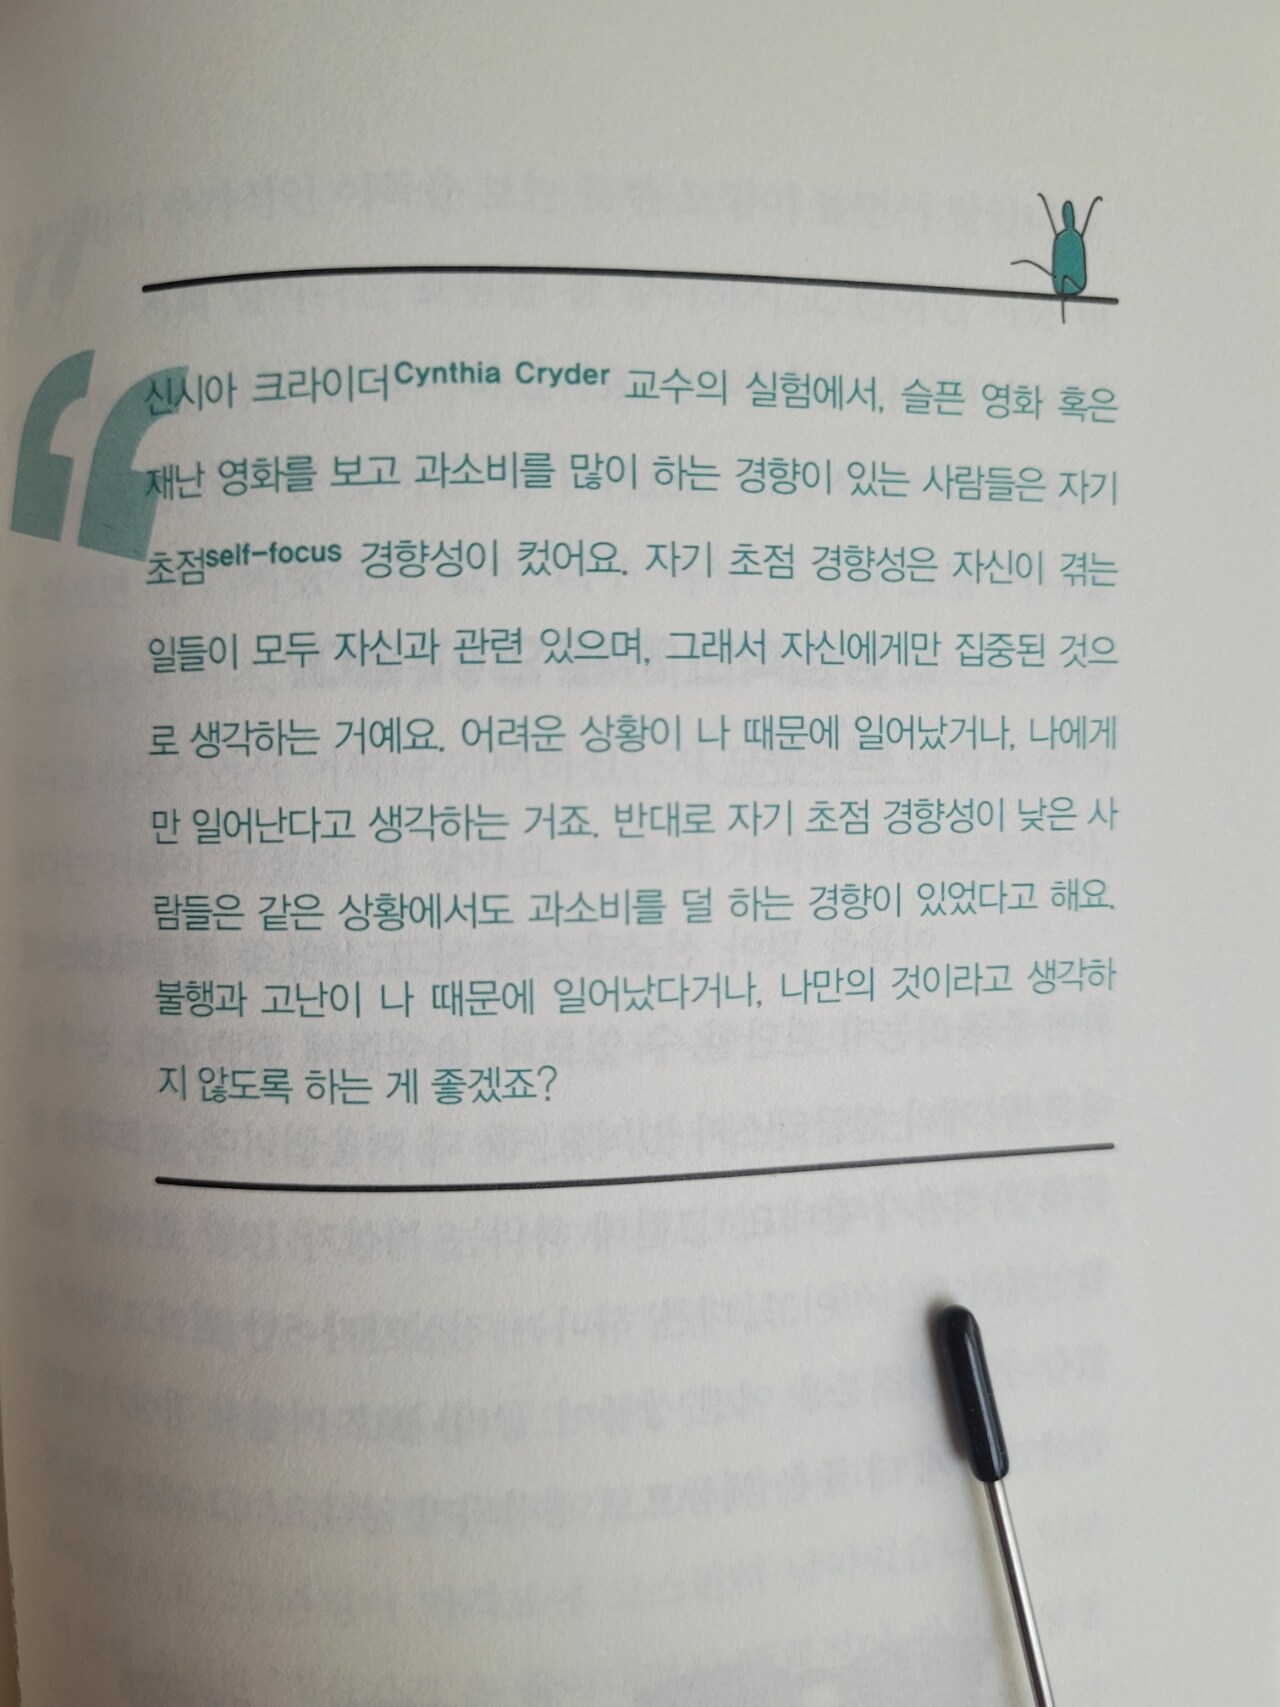 신시아 크라이더Cynthia Cryder 교수의 실험에서, 슬픈 영화 혹은
재난 영화를 보고 과소비를 많이 하는 경향이 있는 사람들은 자기
초점self-focus 경향성이 컸어요. 자기 초점 경향성은 자신이 겪는
일들이 모두 자신과 관련 있으며, 그래서 자신에게만 집중된 것으
로 생각하는 거예요. 어려운 상황이 나 때문에 일어났거나, 나에게
만 일어난다고 생각하는 거죠. 반대로 자기 초점 경향성이 낮은 사
람들은 같은 상황에서도 과소비를 덜 하는 경향이 있었다고 해요.
불행과 고난이 나 때문에 일어났다거나, 나만의 것이라고 생각하
지 않도록 하는 게 좋겠죠?